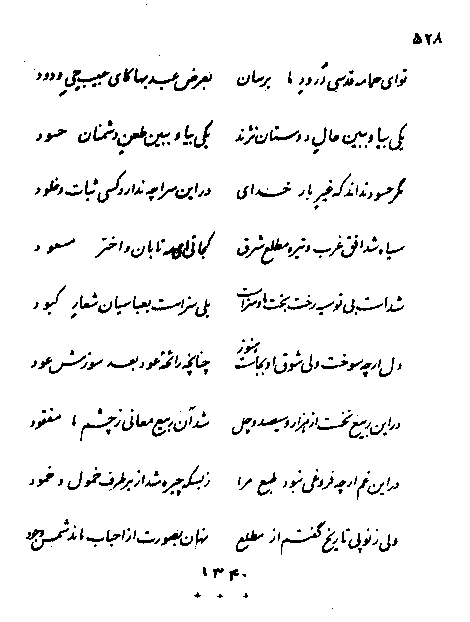 ۵۲۸
توای حمامه قدسی درود ما برسان بعرض عبدبها کای حبیب حی ودود
یکی بیا و ببین حال دوستان نژند یکی بیا و ببین طعن دشمنان حسود
مگر حسود نداند که غیر بار خدای در این سراچه ندارد کسی ثبات و خلود
سیاه شد افق غرب و تیره مطلع شرق کجائی ای مه تابان و اختر مسعود
شداست بی تو سیه رخت بخت ما و سزاست بلی سزاست بعباسیان شعار کبود
دل ارچه سوخت ولی شوق او بجاست هنوز چنانچه رائحهٔ عود بعد سوزش عود
در این ربیع نخست از هزار و سیصد و چل شد آن ربیع معانی ز چشم ما مفقود
در این غم ارچه فروغی نبود طبع مرا زبسکه چیره شد از هر طرف خمول و خمود
ولی ز نو پی تاریخ گفتم از مطلع نهان بصورت از احباب ماند شمس وجود
۱۳۴۰